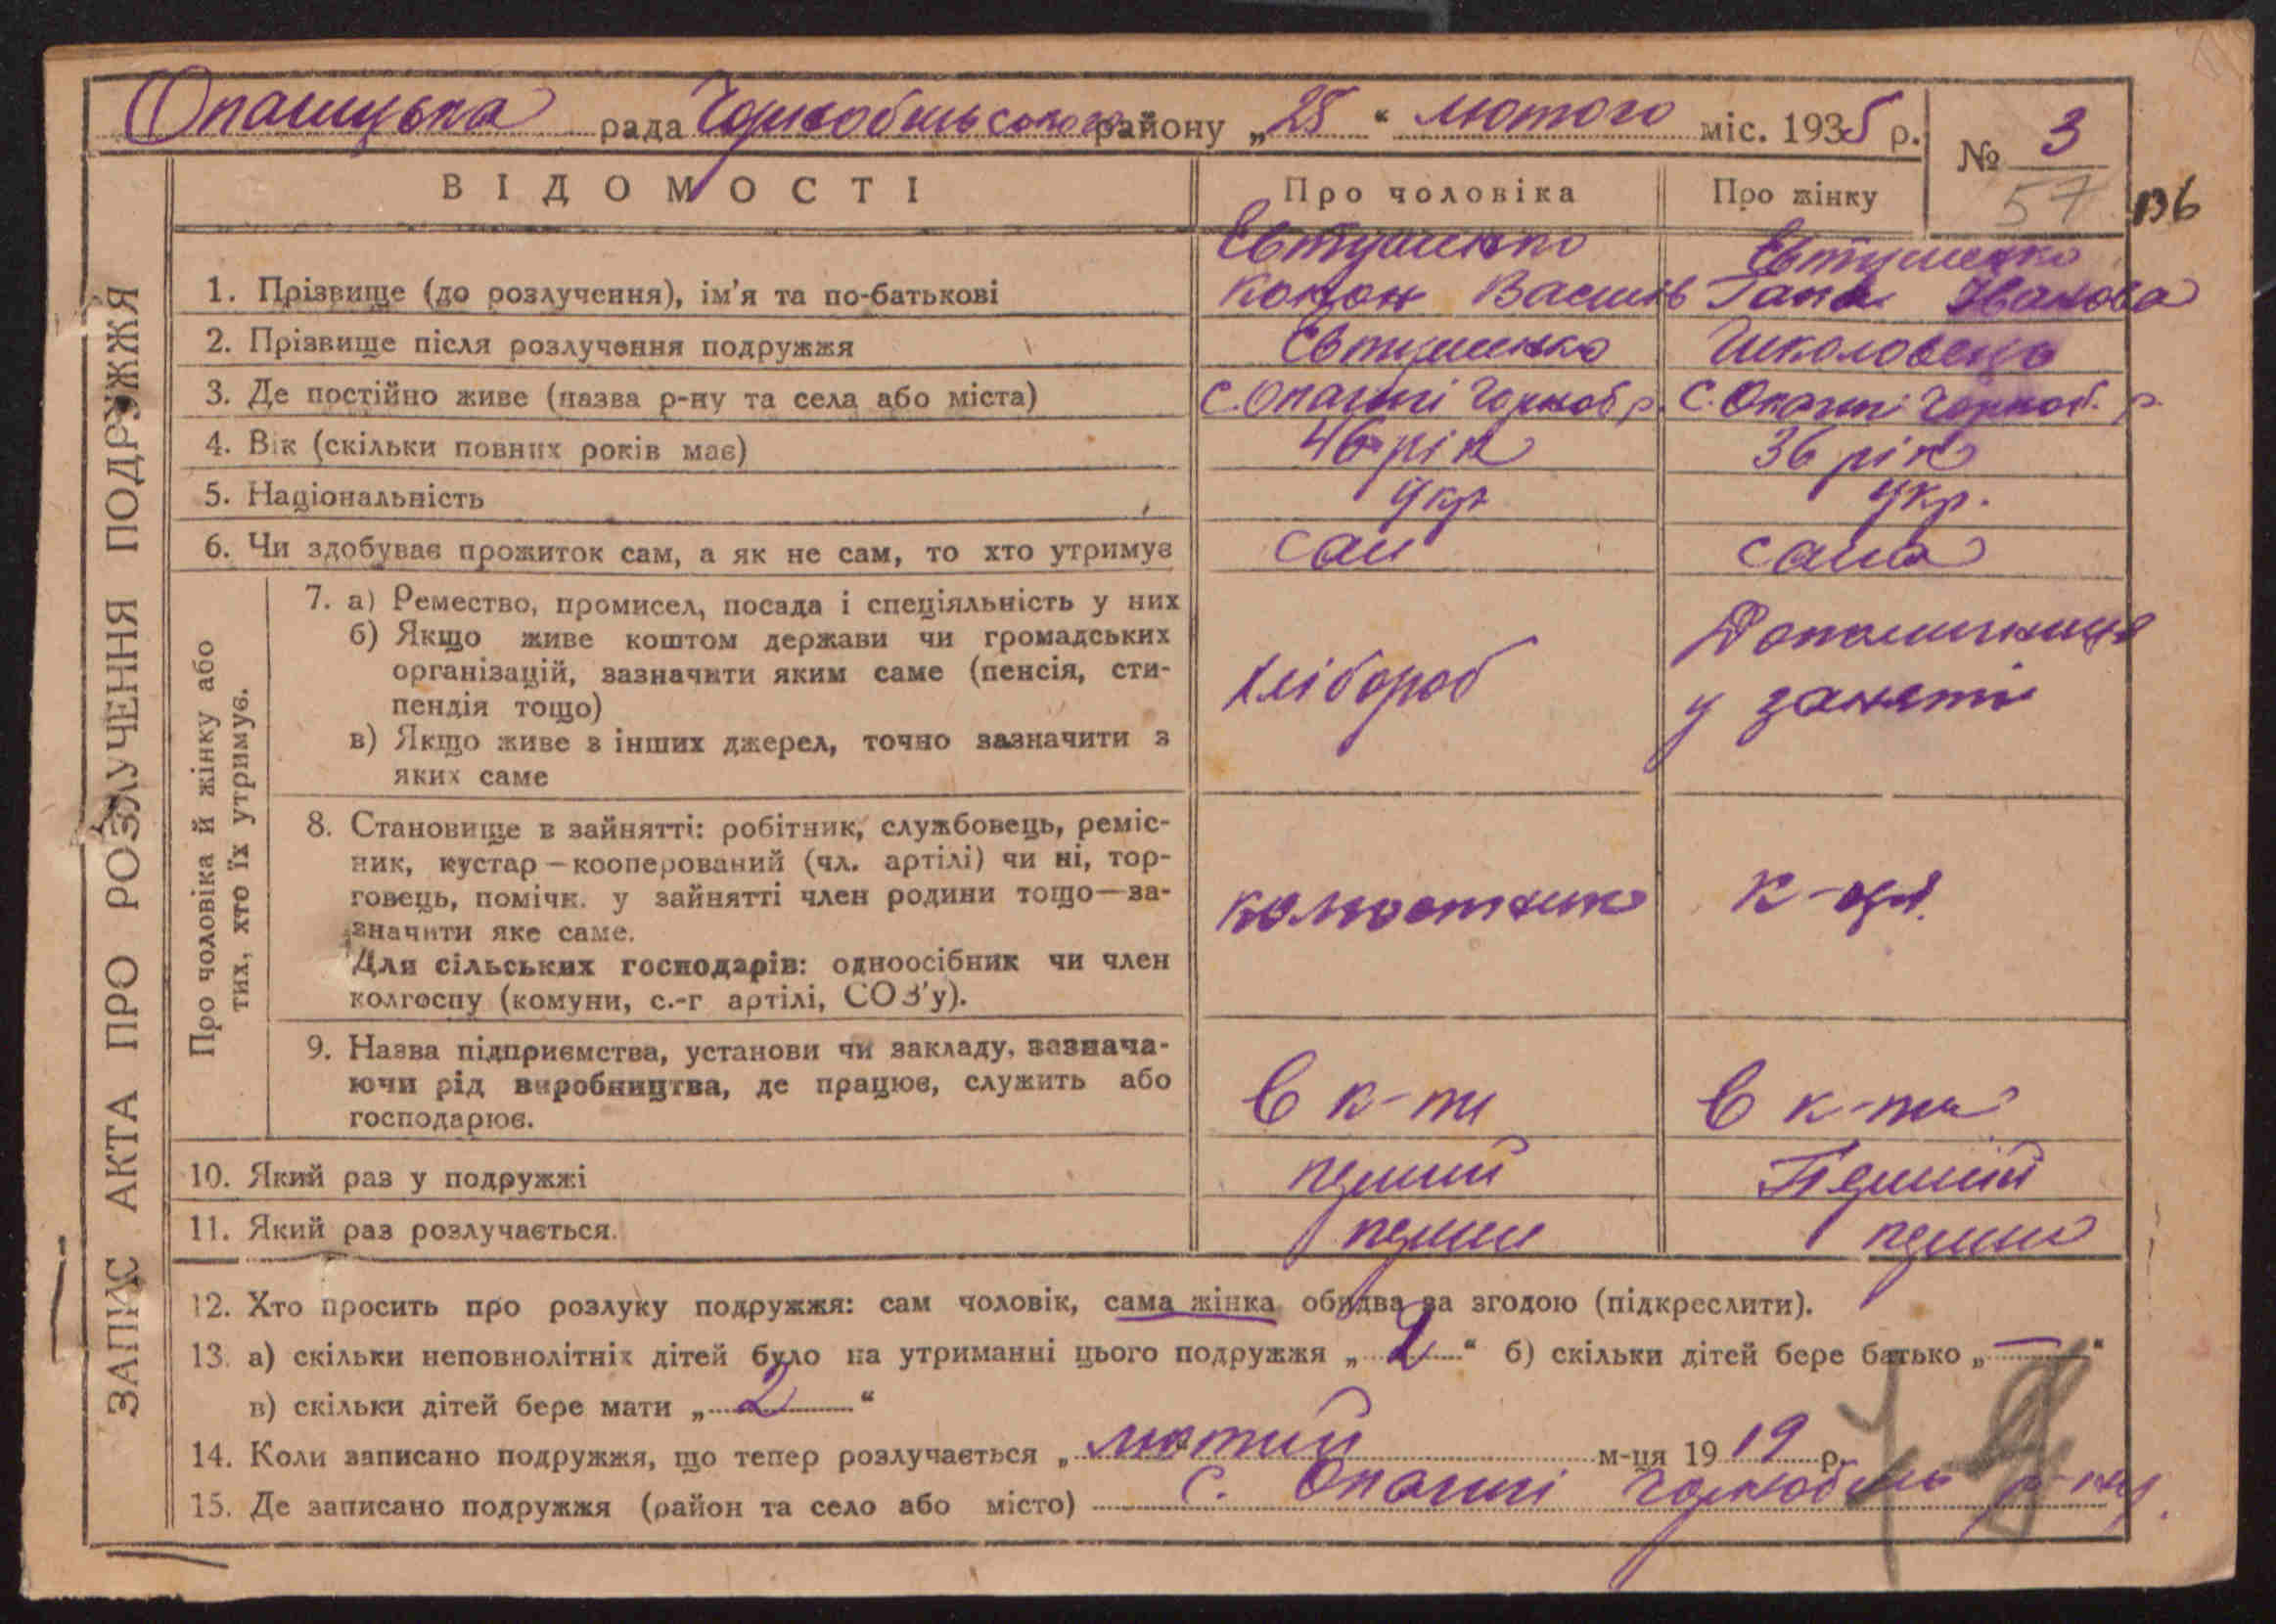 Опачицька рада Чорнобильського району „28“ лютого міс. 1935 р.
№ 3
57
136
ВІДОМОСТІ
Про чоловіка
Про жінку
1. Прізвище (до розлучення), ім'я та по-батькові
Євтушенко
Кондон Василів
Євтушенко
Ганна Іванова
2. Прізвище після розлучення подружжя
Євтушенко
Школовець
3. Де постійно живе (назва р-ну та села або міста)
С. Опачичі Чорноб р.
С. Опачичі Чорноб. р.
4. Вік (скільки повних років має)
46 рік
36 рік
5. Національність
Укр
Укр.
6. Чи здобуває прожиток сам, а як не сам, то хто утримує
сам
сама
Про чоловіка й жінку або
тих, хто їх утримує.
7. а) Ремество, промисел, посада і спеціяльність у них
б) Якщо живе коштом держави чи громадських
організацій, зазначити яким саме (пенсія, сти-
пендія тощо)
в) Якщо живе з інших джерел, точно зазначити з
яких саме
хлібороб
Допомічниця
у занятті
8. Становище в зайнятті: робітник, службовець, реміс-
ник, кустар—кооперований (чл. артілі) чи ні, тор-
говець, помічн. у зайнятті член родини тощо—за-
значити яке саме.
Для сільських господарів: одноосібник чи член
колгоспу (комуни, с.-г артілі, СОЗ'у).
колгоспник
к-ця
9. Назва підприємства, установи чи закладу, зазнача-
ючи рід виробництва, де працює, служить або
господарює.
в к-пі
в к-пі
10. Який раз у подружжі
перший
Перший
11. Який раз розлучається.
перши
перши
12. Хто просить про розлуку подружжя: сам чоловік, сама жінка обидва за згодою (підкреслити).
13. а) скільки неповнолітніх дітей було на утриманні цього подружжя „2“ б) скільки дітей бере батько „—“
в) скільки дітей бере мати „2“
14. Коли записано подружжя, що тепер розлучається „ лютий м-ця 1919 р.
15. Де записано подружжя (район та село або місто) С. Опачичі Чорнобиль р-ну.
ЗАПИС АКТА ПРО РОЗЛУЧЕННЯ ПОДРУЖЖЯ